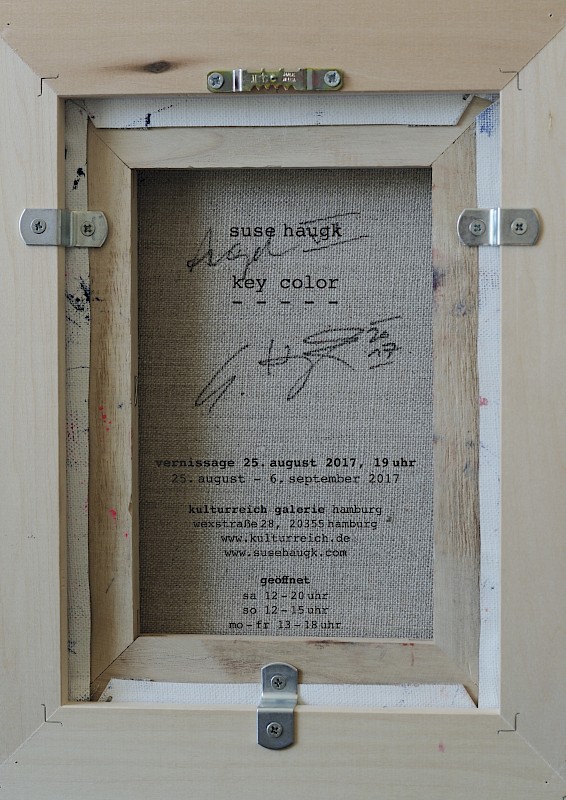 suse haugk
key color
- - - - -
vernissage 25. august 2017, 19 uhr
25. august – 6. september 2017
kulturreich galerie hamburg
wexstraße 28, 20355 hamburg
www.kulturreich.de
www.susehaugk.com
geöffnet
sa 12 – 20 uhr
so 12 – 15 uhr
mo – fr 13 – 18 uhr